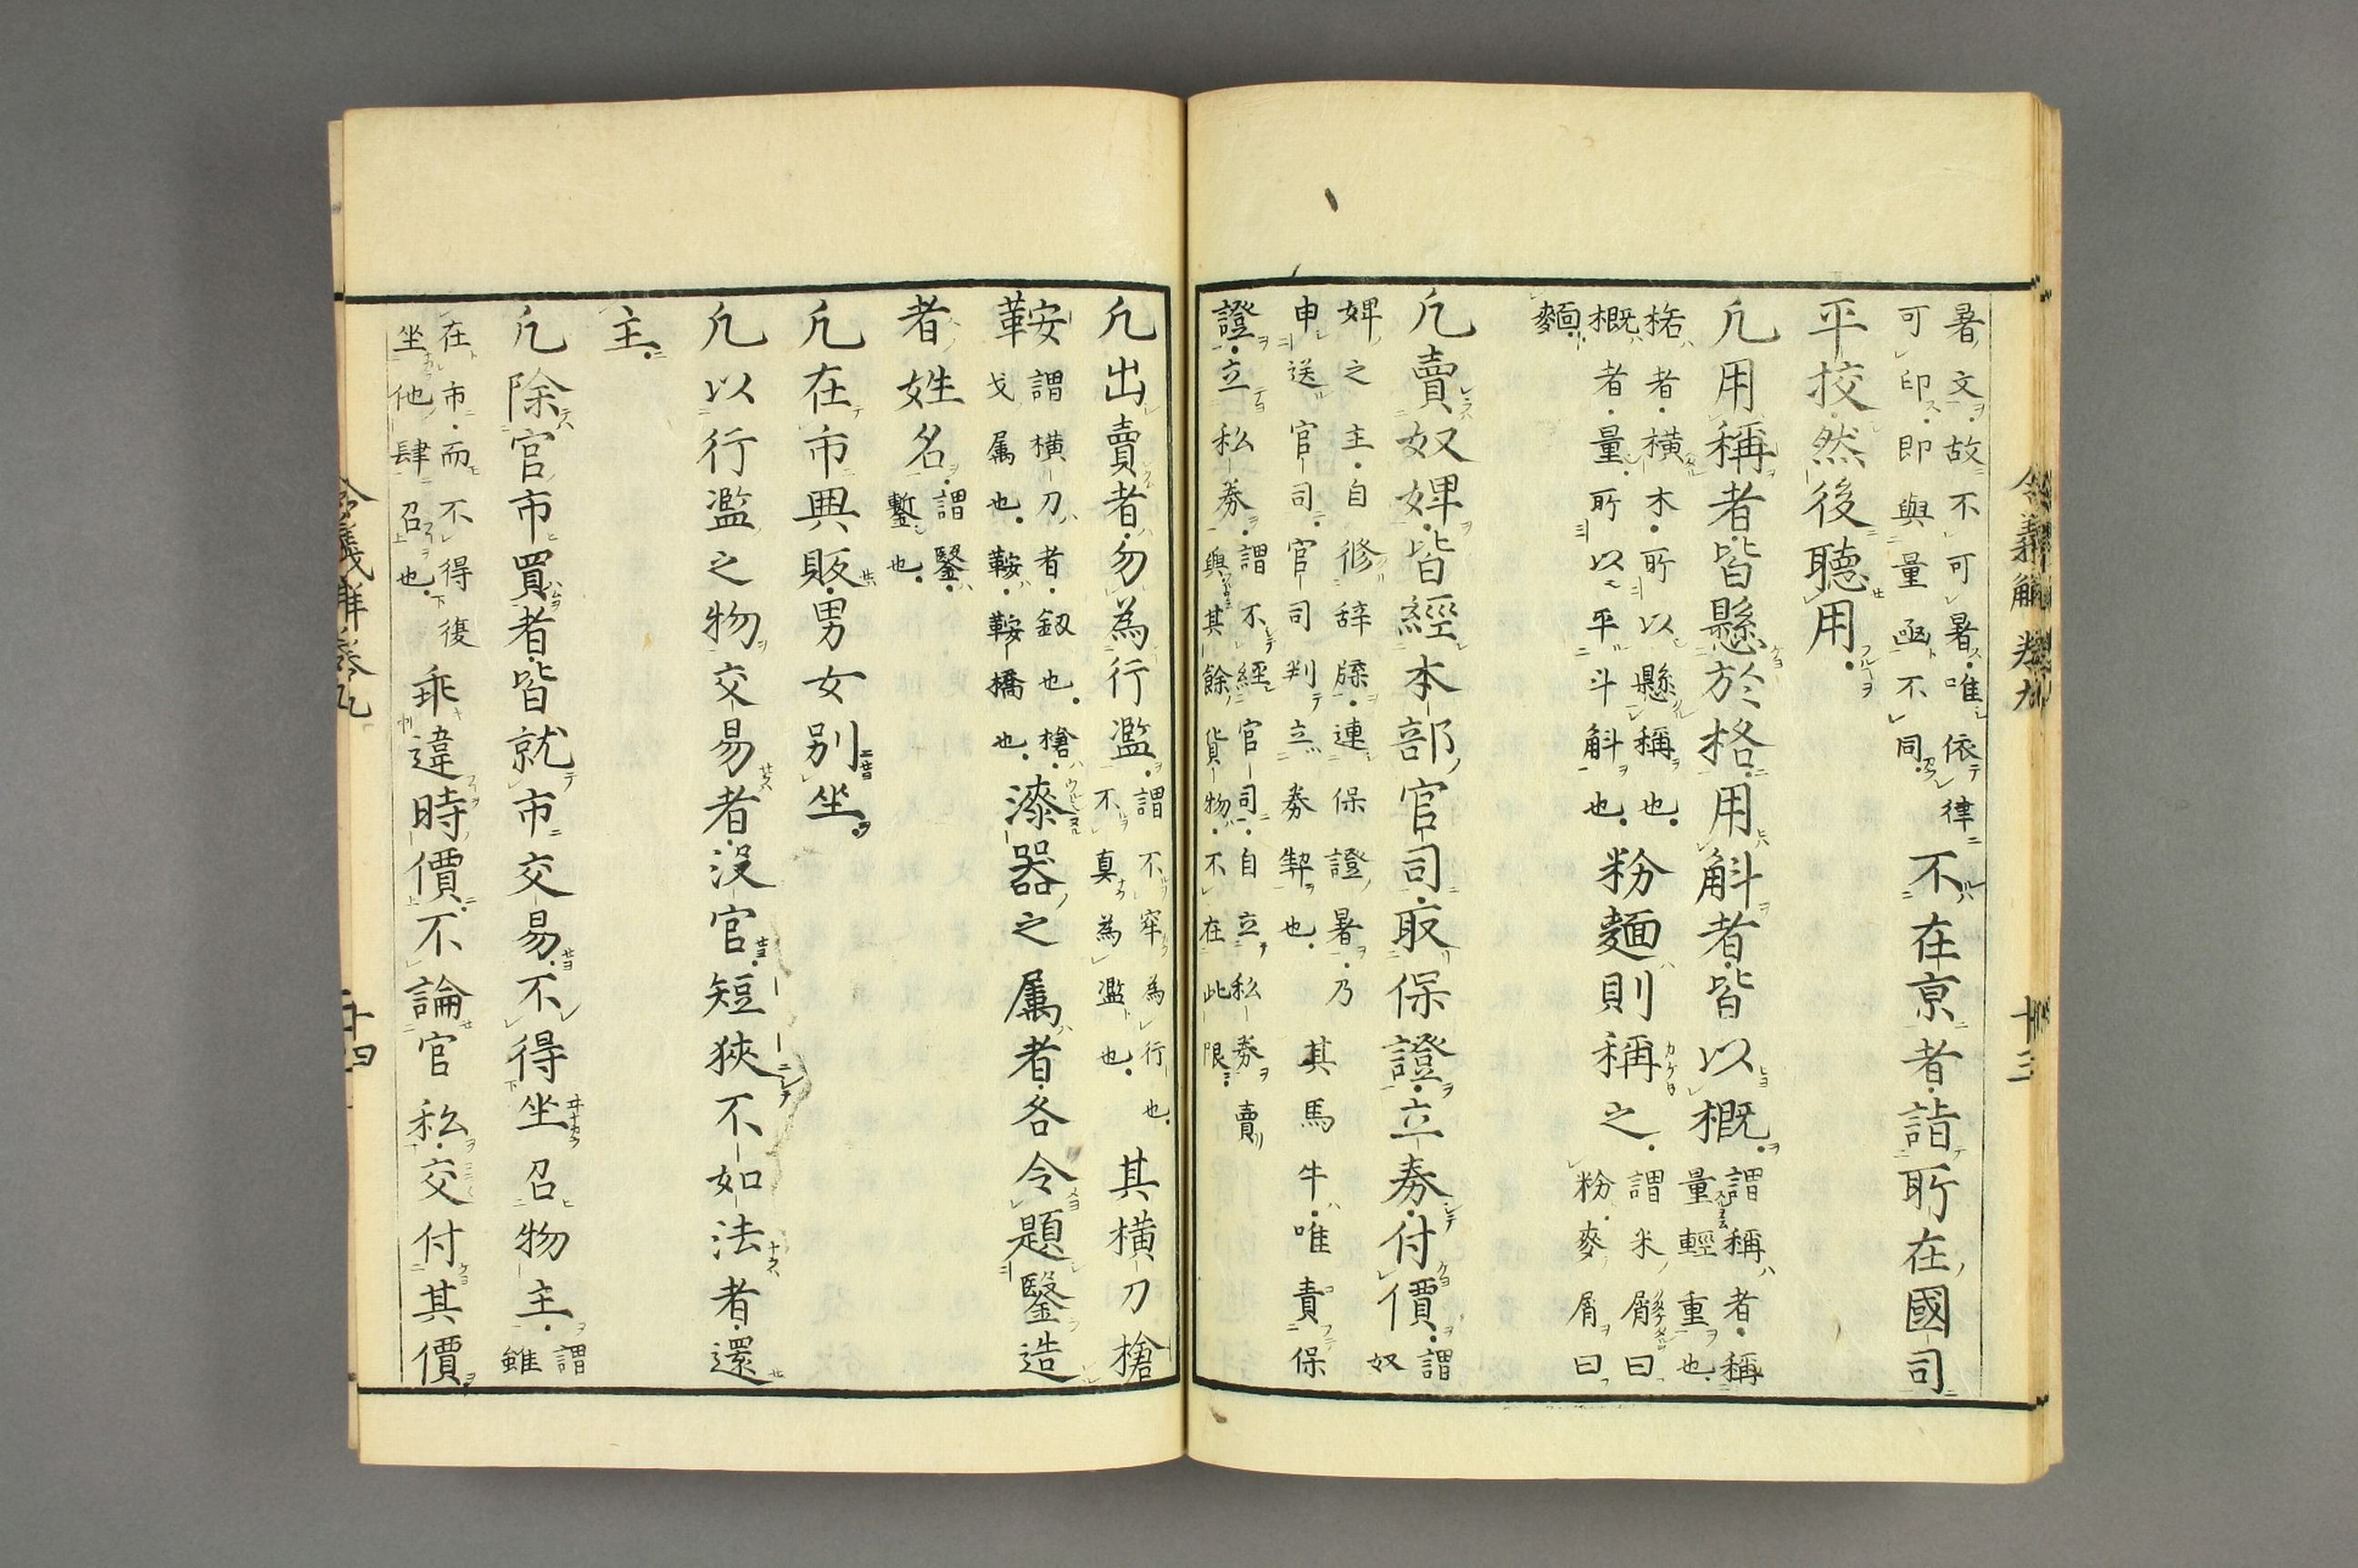 署文故不可署唯依律
可印即與量函不同
不在京者詣所在國司
平挍然後聽用
凡用稱者皆懸於格用斛者皆以概
謂稱者稱
量輕重也
格者横木所以懸稱也
概者量所以平斗斛也
粉麺則稱之
謂米屑曰
粉麥屑曰
麺
凡賣奴婢皆經本部官司取保證立券付價
謂
奴
婢之主自修辞牒連保證署乃
申送官司官司判立券契也
其馬牛唯責保
證立私券
謂不經官司自立私券賣
與其餘貨物不在此限
令義解卷九
十三
凡出賣者勿為行濫
謂不牢為行也
不真為濫也
其横刀槍
鞍
謂横刀者釼也槍
戈属也鞍鞍橋也
漆器之属者各令題鑿造
者姓名
謂鑿
鏨也
凡在市興販男女別坐
凡以行濫之物交易者没官短狹不如法者還
主
凡除官市買者皆就市交易不得坐召物主
謂
雖
在市而不得復
坐他肆召也
乖違時價不論官私交付其價
令義解卷九
十四